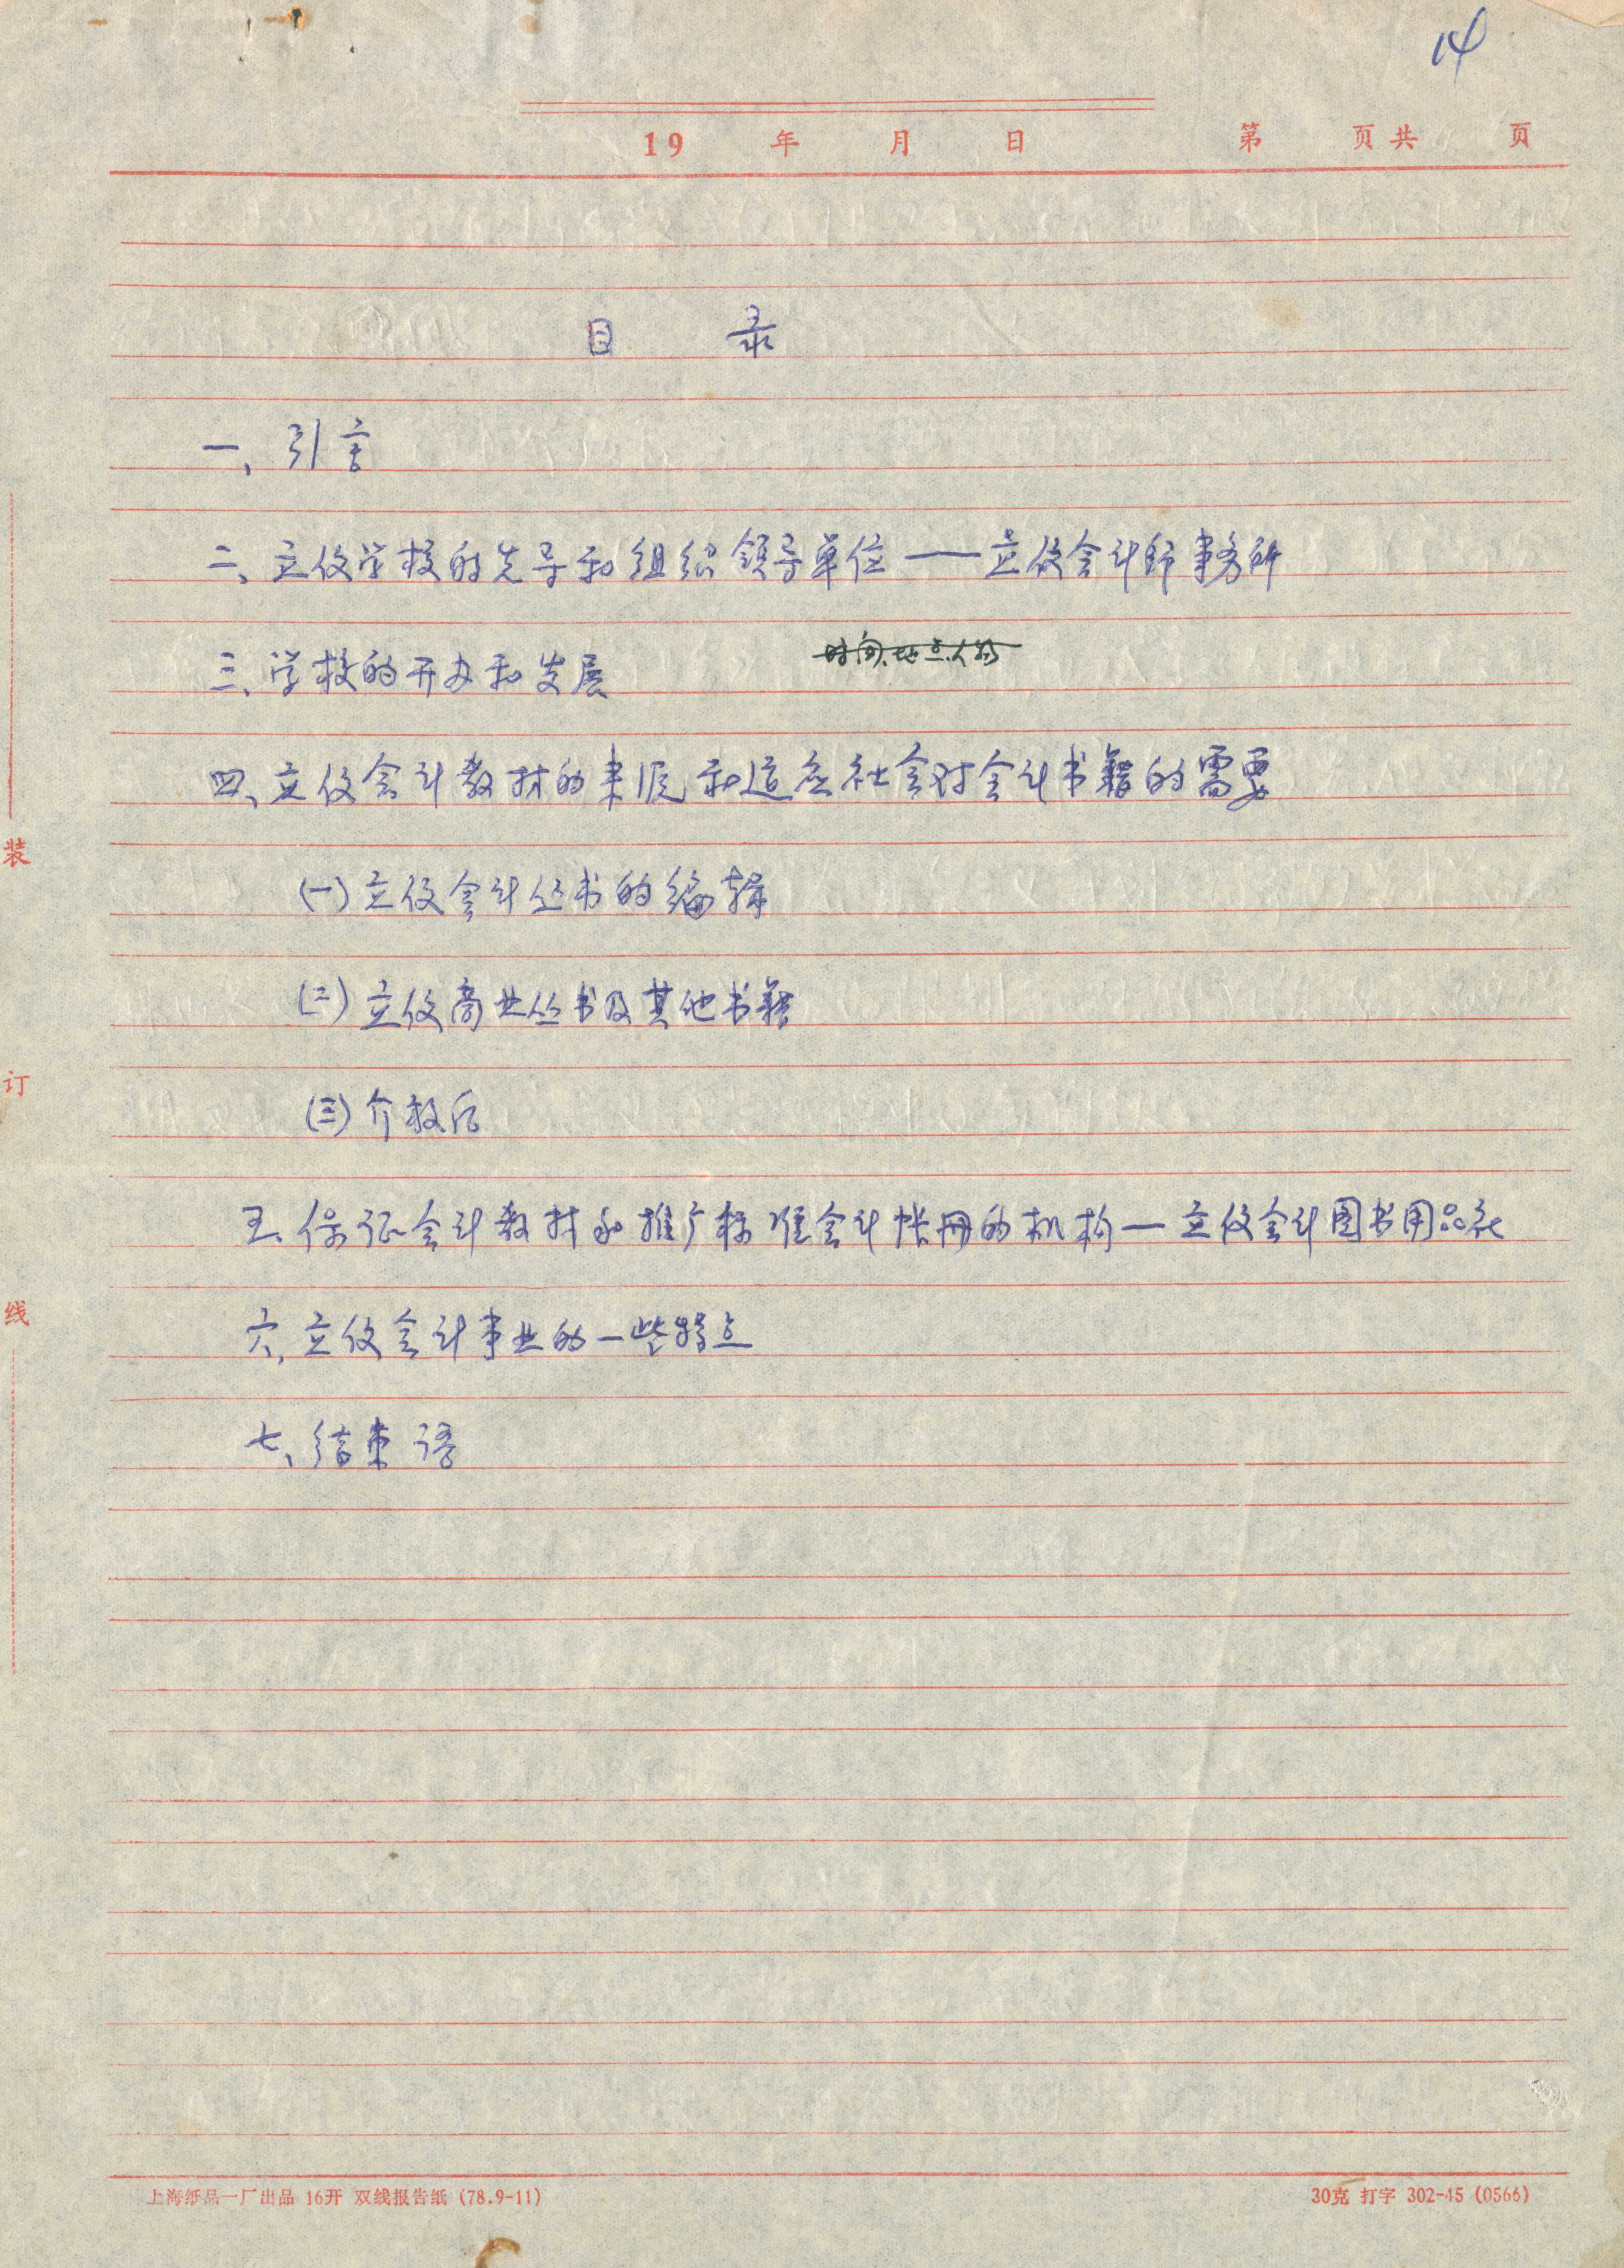 14
19 年 月 日 第 页共 页
目 录
一、引言
二、立信学校的先导和组织领导单位——立信会计师事务所
时间、地点、人物
三、学校的开办和发展
四、立信会计教材的来源和适应社会对会计书籍的需要
(一)立信会计丛书的编辑
(二)立信商业丛书及其他书籍
(三)介放后
五、保证会计教材和推广标准会计帐册的机构—立信会计图书用品社
六、立信会计事业的一些特点
七、结束语
装
订
线
上海纸品一厂出品 16开 双线报告纸 (78.9-11)
30克 打字 302-45 (0566)